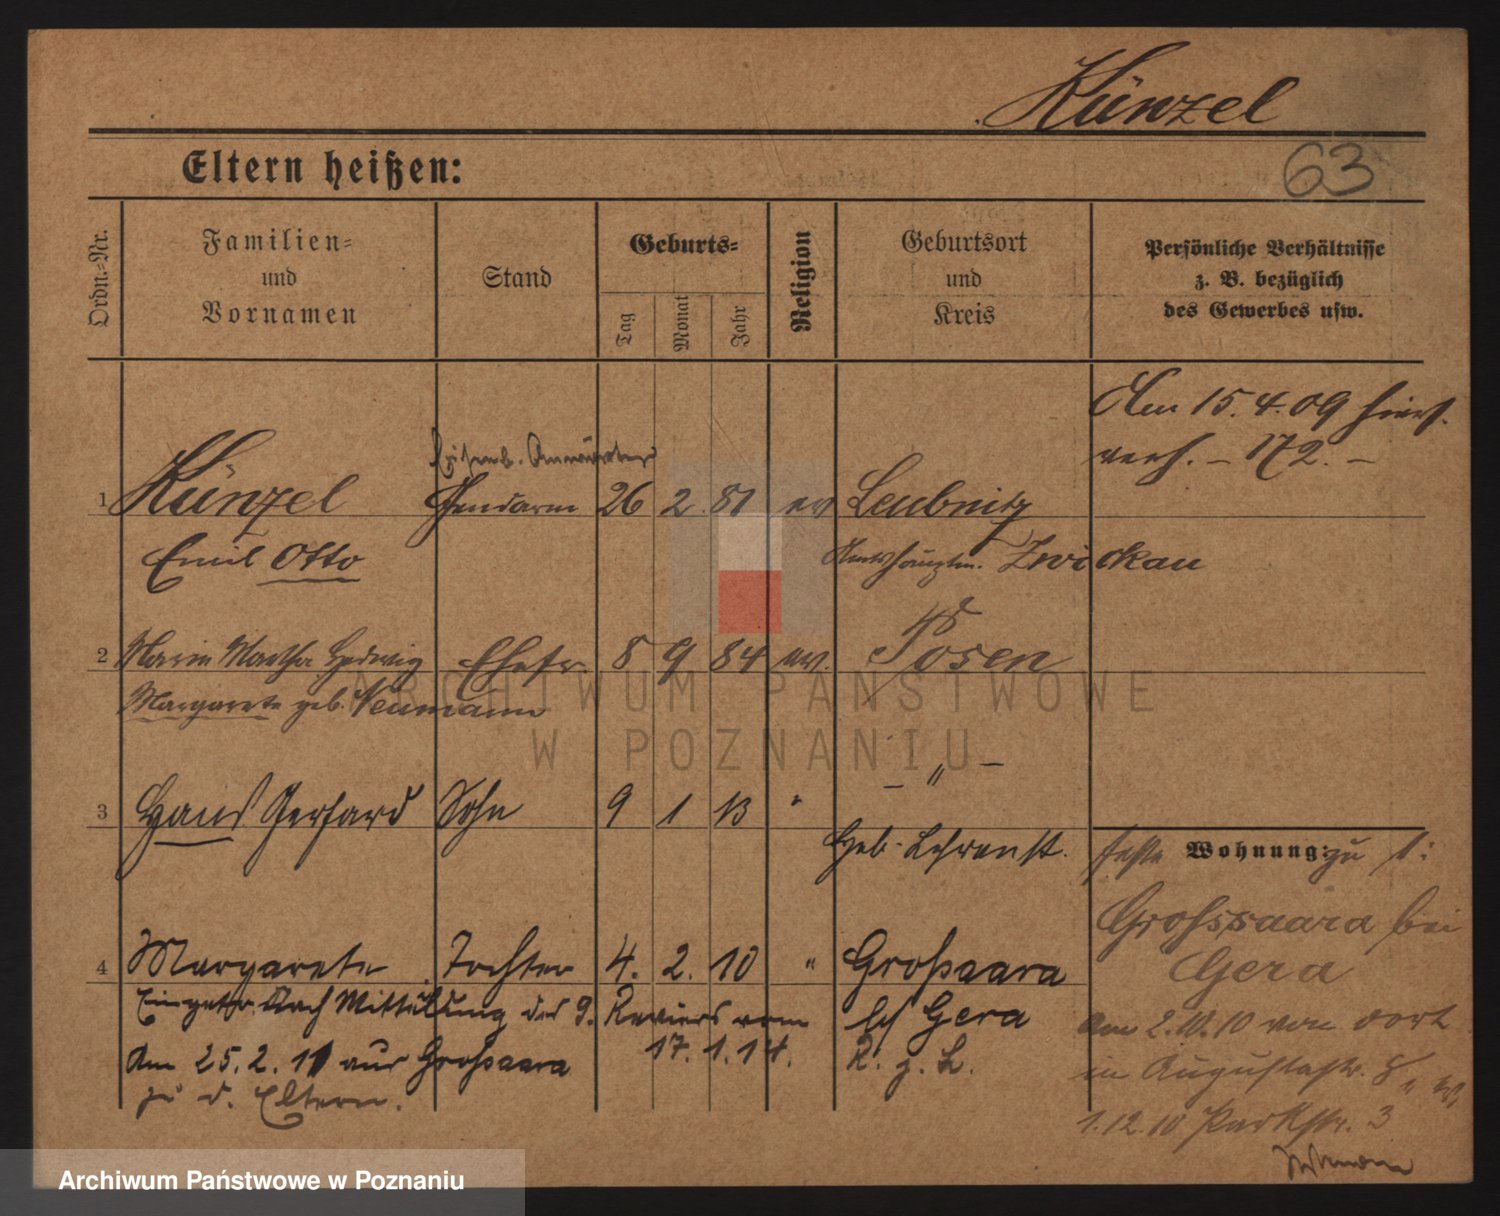 Künzel
Eltern heißen:
63
Ordn.-Nr.
Familien-
und
Vornamen
Stand
Geburts-
Tag
Monat
Jahr
Religion
Geburtsort
und
Kreis
Persönliche Verhältnisse
z. B. bezüglich
des Gewerbes usw.
Am 15.4.09
verh. – 172. –
Eisenb. Anwärter
1 Künzel Gendarm 26 2 81 ev Leubnitz
Emil Otto Amtshauptm. Zwickau
2 Marie Martha Hedwig Ehefr. 8 9 84 ev. Posen
Margarete geb. Neumann
– " –
3 Hans Gerhard Sohn 9 1 13 "
Geb. feste Wohnung: zu 1:
Grosssaara bei
4 Margarete Tochter 4. 2. 10 " Großsaara Gera
Eingetr. nach Mitteilung des 9. Reviers vom b/ Gera
17.1.14. R. j. L.
Am 25.2.11 aus Großsaara
zu d. Eltern.
Am 2.10.10 von dort
in Augustastr. 8
1.12.10 Parkstr. 3
ARCHIWUM PAŃSTWOWE
W POZNANIU
Archiwum Państwowe w Poznaniu